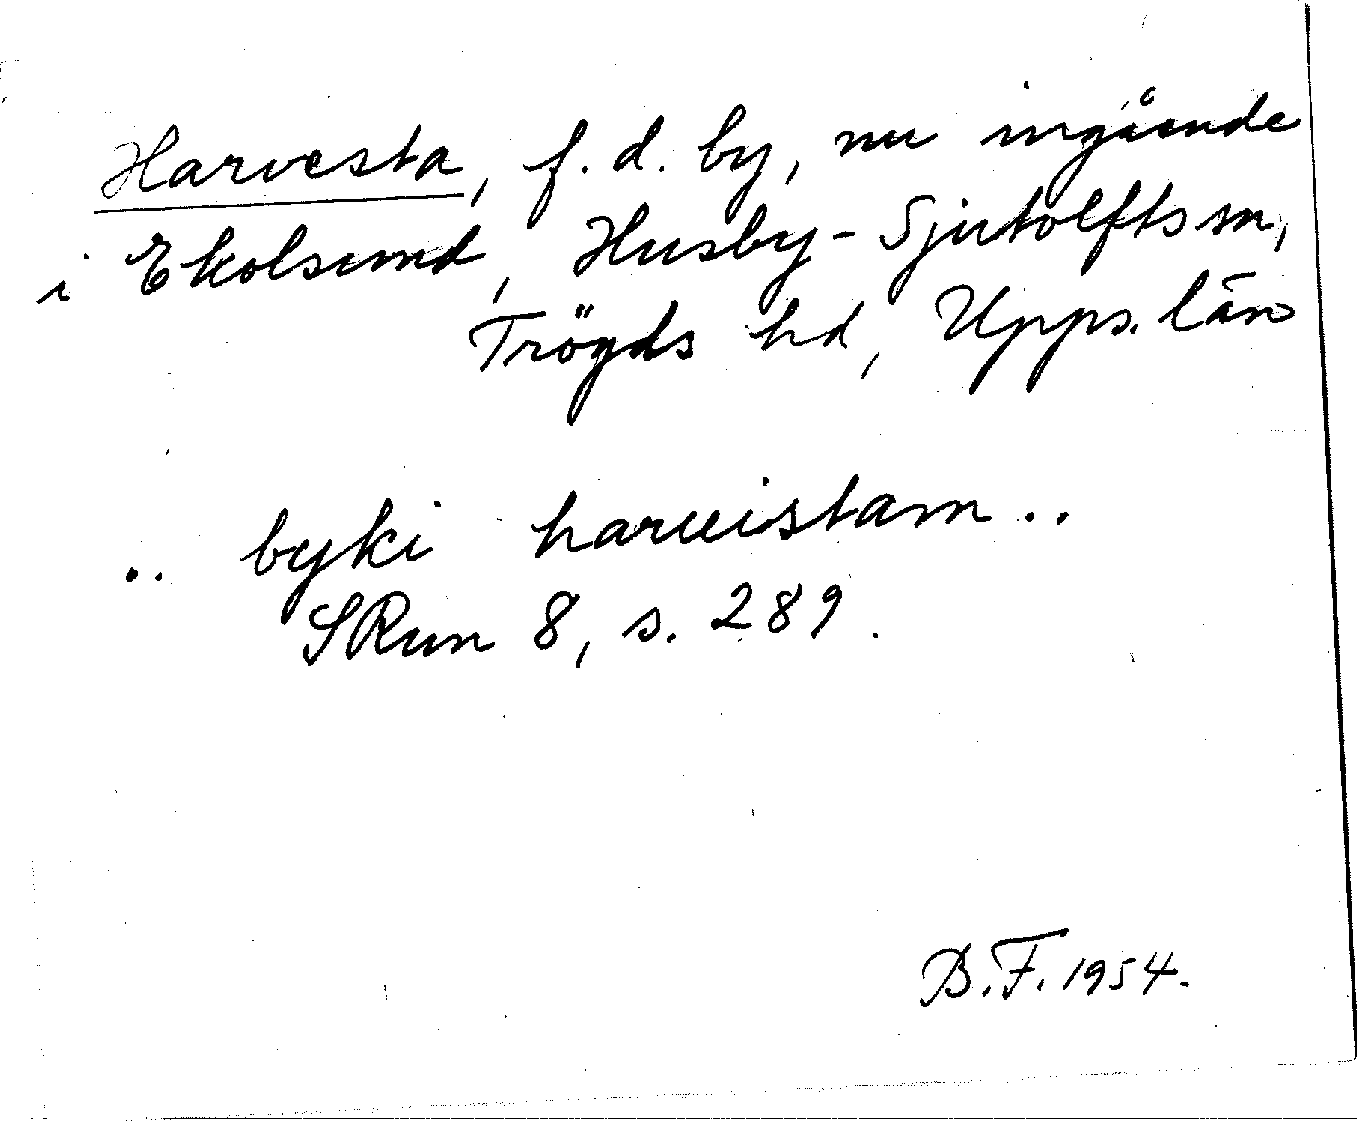 Harvesta, f. d. by, nu ingående
i Ekolsund, Husby-Sjutolfts sn,
Trögds hd, Upps. län
.. byki harueistam ..
SRun 8, s. 289.
B.F. 1954.